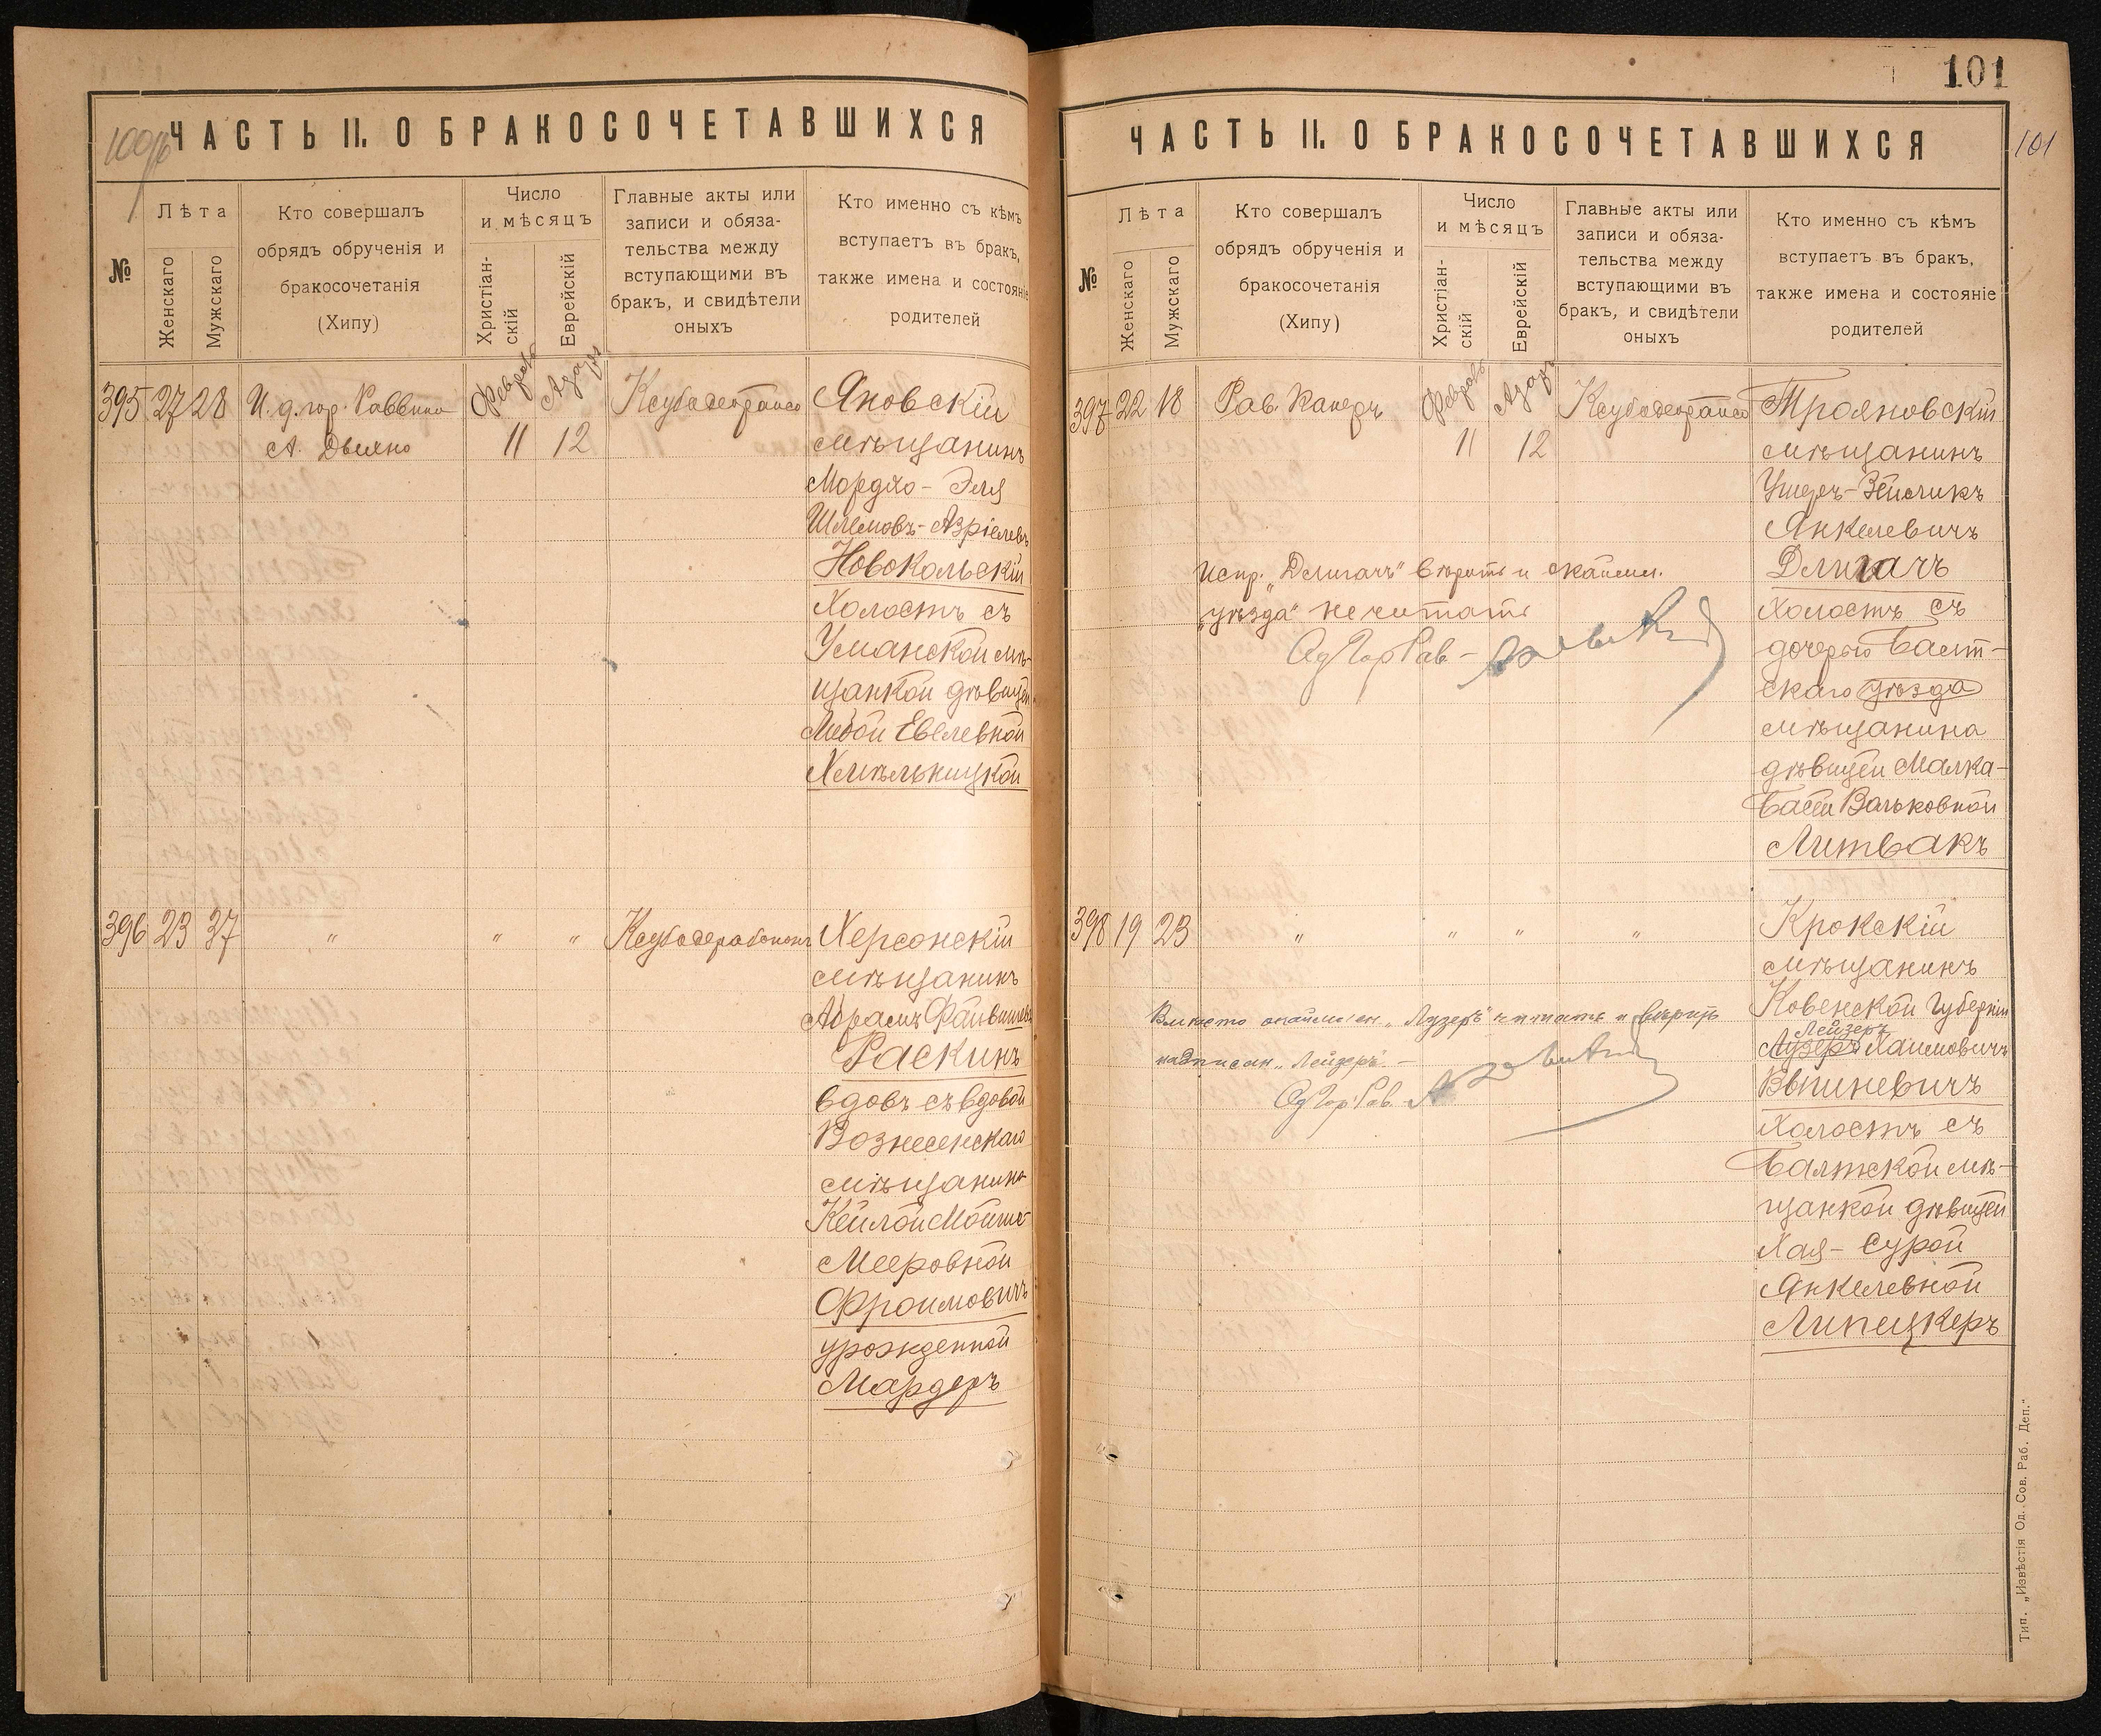 100
ЧАСТЬ II. О БРАКОСОЧЕТАВШИХСЯ
№
Лѣта
Женскаго
Мужскаго
Кто совершалъ
обрядъ обрученія и
бракосочетанія
(Хипу)
Число
и мѣсяцъ
Христіан-
скій
Еврейскій
Главные акты или
записи и обяза-
тельства между
вступающими въ
бракъ, и свидѣтели
оныхъ
Кто именно съ кѣмъ
вступаетъ въ бракъ,
также имена и состояніе
родителей
395 27 28 И. д. гор. Раввина
А. Двѣлно
Февраль
Адаръ
11 12
Яновскій
мѣщанинъ
Мордко-Эля
Шлемовъ-Азріелевъ
Новокольскій
холостъ съ
Уманской мѣ-
щанкой дѣвицей
Любой Евелевной
Хмѣльницкой
396 23 37 " " "
Херсонскій
мѣщанинъ
Абрамъ Файвишевъ
Раскинъ
вдовъ съ вдовой
Вознесенскаго
мѣщанина
Кейлой Мойше-
Мееровной
Фроимовичъ
урожденной
Мардеръ
101
ЧАСТЬ II. О БРАКОСОЧЕТАВШИХСЯ
101
№
Лѣта
Женскаго
Мужскаго
Кто совершалъ
обрядъ обрученія и
бракосочетанія
(Хипу)
Число
и мѣсяцъ
Христіан-
скій
Еврейскій
Главные акты или
записи и обяза-
тельства между
вступающими въ
бракъ, и свидѣтели
оныхъ
Кто именно съ кѣмъ
вступаетъ въ бракъ,
также имена и состояніе
родителей
397 22 18 Рав. Канеръ
Февраль
Адаръ
11 12
Трояновскій
мѣщанинъ
Ушеръ-Зейликъ
Янкелевичъ
Длигачъ
холостъ съ
дочерью Балт-
скаго уѣзда
мѣщанина
дѣвицей Малка-
Басей Вольковной
Литвакъ
Испр. „Длигачъ" вѣрить и окаймл.
„уѣзда" не читать
Од Гор Рав -
398 19 23 " " " "
Крокскій
мѣщанинъ
Ковенской Губерніи
Лейзеръ
Лузеръ Хаимовичъ
холостъ съ
Балтской мѣ-
щанкой дѣвицей
Хая-Сурой
Янкелевной
Липецкеръ
Вмѣсто окаймлен. „Лузеръ" читать и вѣрить
надписан. „Лейзеръ". -
Од Гор Рав. -
Тип. „Извѣстія Од. Сов. Раб. Деп."